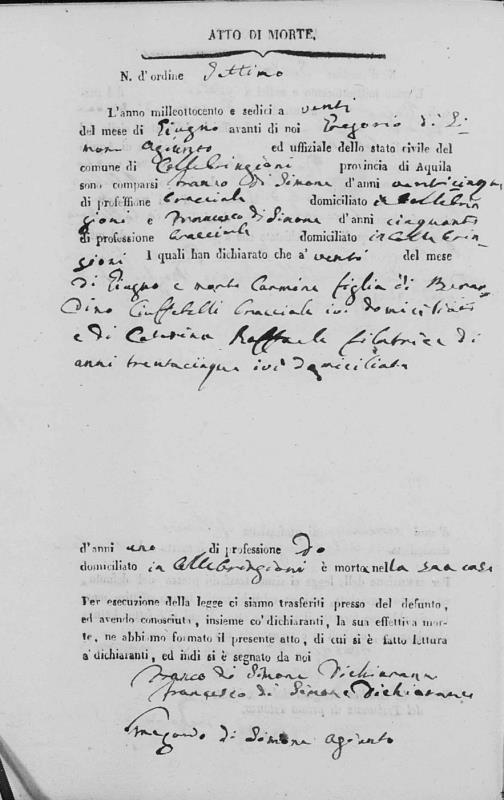 ATTO DI MORTE.
N. d'ordine Settimo
L'anno milleottocento e sedici a venti
del mese di Giugno avanti di noi Gregorio di Si-
mone Agiunto ed uffiziale dello stato civile del
comune di Collebringioni provincia di Aquila
sono comparsi Franco di Simone d'anni venticinque
di professione Bracciale domiciliato in Collebrin
gioni e Francesco di Simone d'anni cinquanta
di professione Bracciale domiciliato in Collebrin-
gioni I quali han dichiarato che a' venti del mese
di Giugno e morta Carmina figlia di Berar
dino Ciuffetelli bracciale ivi domiciliato
e di Caterina Raffaele filatrice di
anni trentacinque ivi domiciliata
d'anni uno di professione
domiciliato in Collebringioni è morta nella sua casa
Per esecuzione della legge ci siamo trasferiti presso del defunto,
ed avendo conosciuta, insieme co' dichiaranti, la sua effettiva mor-
te, ne abbiamo formato il presente atto, di cui si è fatto lettura
a' dichiaranti, ed indi si è segnato da noi
Franco di Simone Dichiarante
Francesco di Simone Dichiarante
di Simone Agiunto